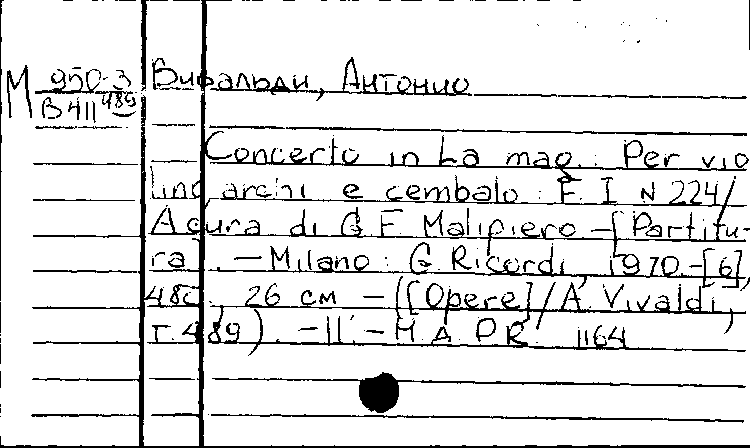 М 950-3 Вивальди, Антонио
В 411 489
Concerto in La mag.: Per vio
lino archi e cembalo: F. I N 224/
A cura di G F Malipiero – [Partitu-
ra]. – Milano: G Ricordi, 1970. – [6],
48с., 26 см – ([Opere]/A. Vivaldi,
т. 489). – II. – Н. Д. P.R. 1164